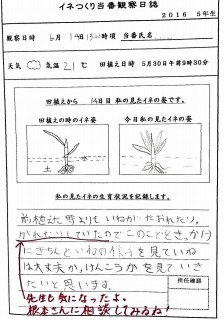 イネつくり当番観察日誌
2016 5年生
観察日時 6月14日13時頃 当番氏名
天気 気温21℃ 田植え日時 5月30日午前9時30分
田植えから 14日目 私の見たイネの姿です。
田植えの時のイネ姿 今日私の見たイネの姿
私の見たイネの生育状況を記録します。
前植えた時よりもいねがたおれたり。
かれたりしていたのでこのことをきっかけ
にきちんといねの様子を見ていね
は大丈夫か、けんこうかを見ていき
たいと思います。
担任確認
先生も気になったよ。
根本さんに相談してみるね!